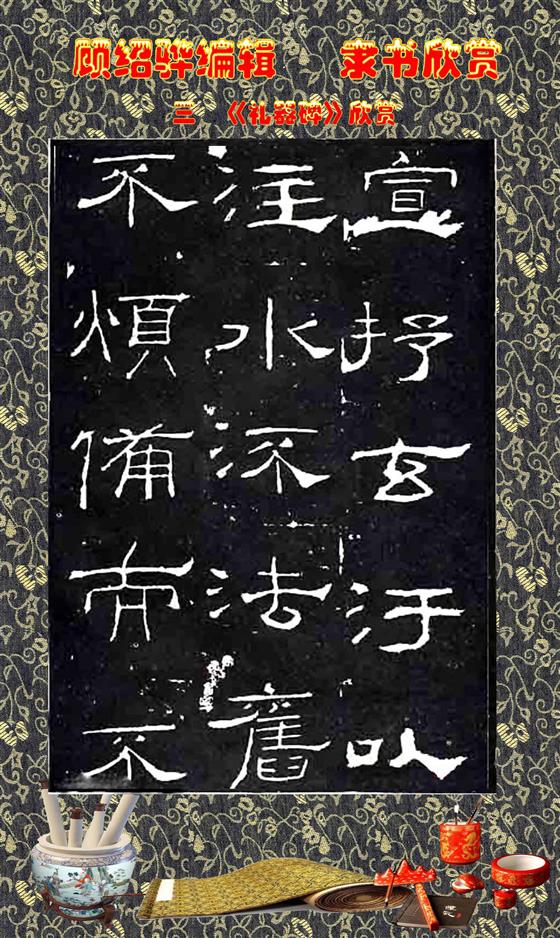 顾绍骅编辑 隶书欣赏
三 《礼器碑》欣赏
宣抒玄汙以
注水流法舊
不煩備而不